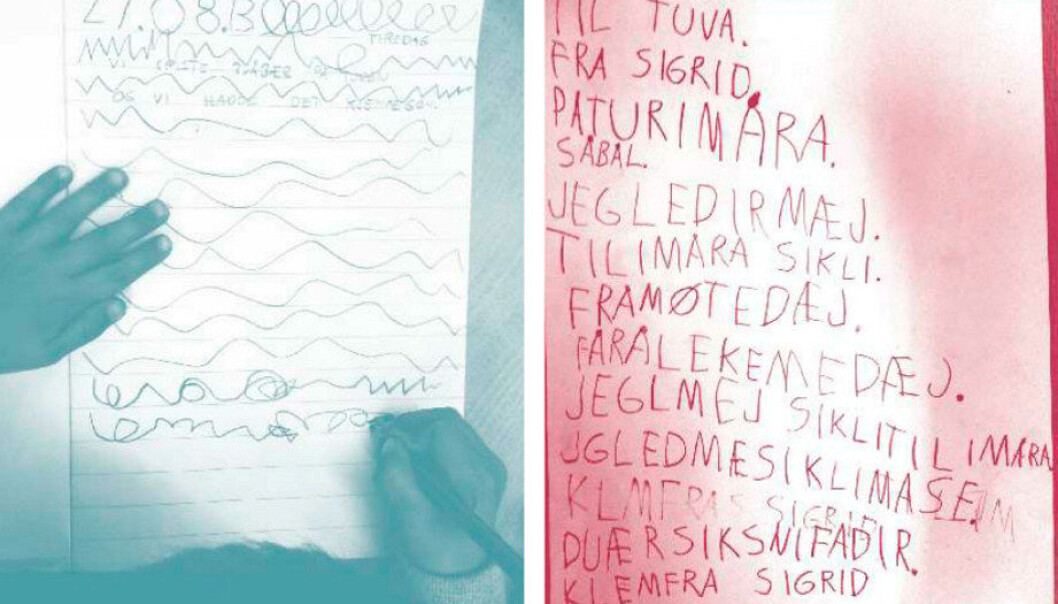 27.08.13
TIRSDAG
OG VI HADDE DET
TIL TUVA.
FRA SIGRID.
PATURIMÅRA.
SÅBAL.
JEGLEDIRMÆJ.
TILIMÅRA SIKLI.
FRAMØTEDÆJ.
FÅRALEKEMEDÆJ.
JEGLMEJ SIKLITILIMÅRA
JGLEDMÆSIKLIMASE
KLMFRA SIGRID
DUÆRSIKSNIFADIR.
KLEMFRA SIGRID